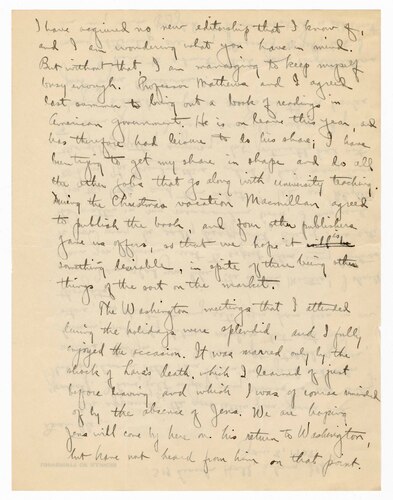 I have acquired no new editorship that I know of,
and I am wondering what you have in mind.
But without that I am managing to keep myself
busy enough. Professor Mathews and I agreed
last summer to bring out a book of readings in
American government. He is on leave this year, and
has therefore had leisure to do his share; I have
been trying to get my share in shape and do all
the other jobs that go along with university teaching.
During the Christmas vacation Macmillan agreed
to publish the book, and four other publishers
gave us offers, so that we hope it will be
something desirable, in spite of there being other
things of the sort on the market.
The Washington meetings that I attended
during the holidays were splendid, and I fully
enjoyed the occasion. It was marred only by the
shock of death, which I learned of just
before leaving and which I was of course reminded
of by the absence of Jens. We are hoping
Jens will come by here on his return to Washington,
but have not heard from him on that point.